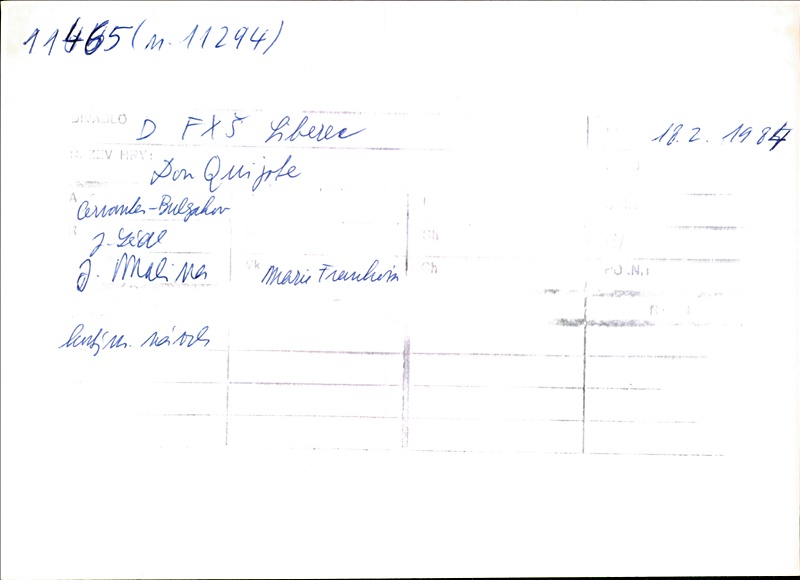 11465 (n. 11294)
DIVADLO D FXŠ Liberec 18.2. 1984
Don Quijote
Cervantes-Bulgakov
J. Lédl
J. Malina Marie Franková
kostým. návrh